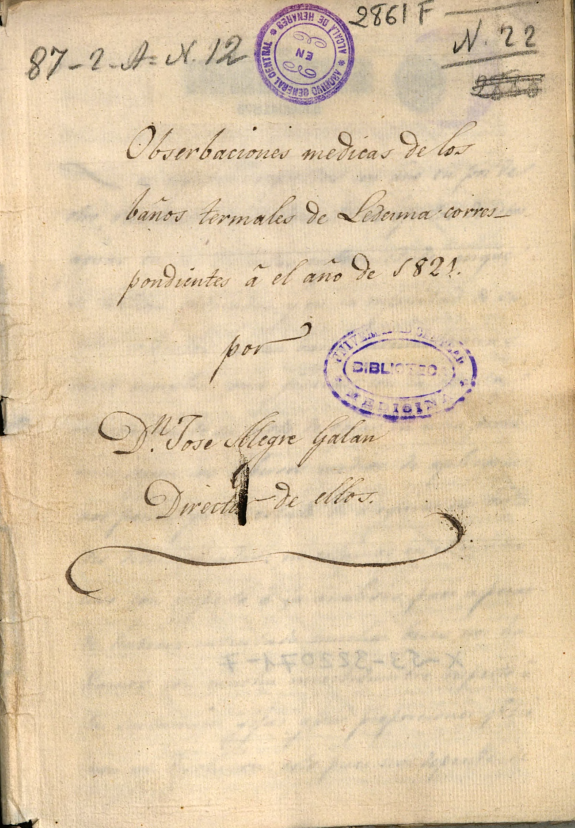 2861 F
87-2-A= N. 12
N. 22
ARCHIVO GENERAL CENTRAL
EN
ALCALÁ DE HENARES
Obserbaciones medicas de los
baños termales de Ledesma corres-
pondientes á el año de 1821.
por
BIBLIOTECA
MEDICINA
Dn. Jose Alegre Galan
Director de ellos.
X-53-322071-7